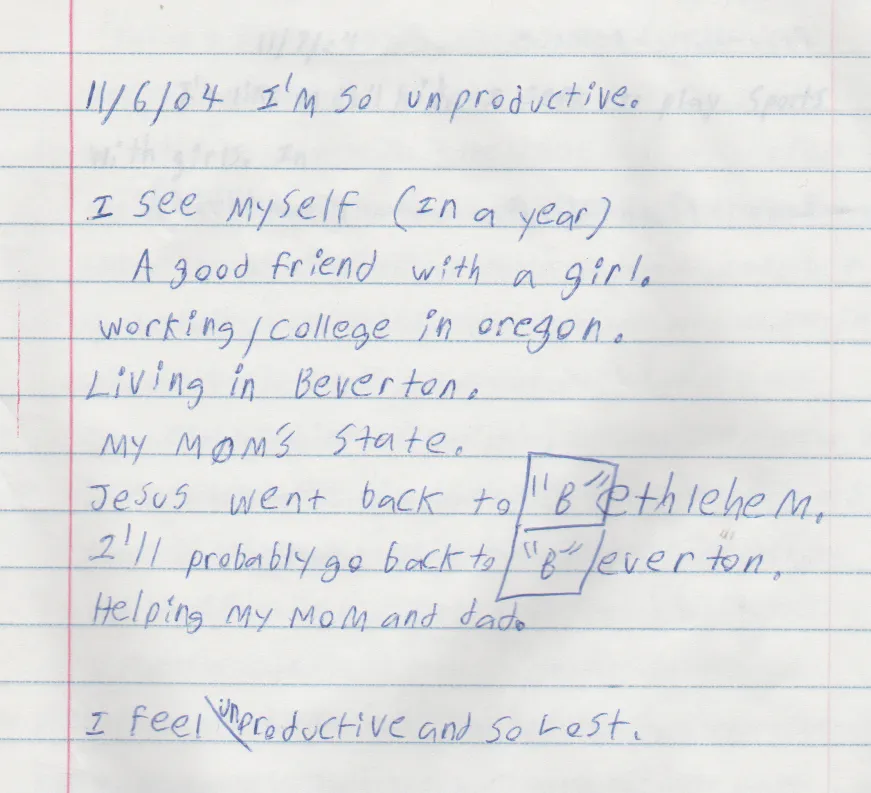 11/6/04 I'm so unproductive.
I see myself (In a year)
A good friend with a girl.
working/college in oregon.
Living in Beverton.
My Mom's State.
Jesus went back to "B"ethlehem.
I'll probably go back to "B"everton.
Helping my Mom and dad.
I feel unproductive and so Lost.